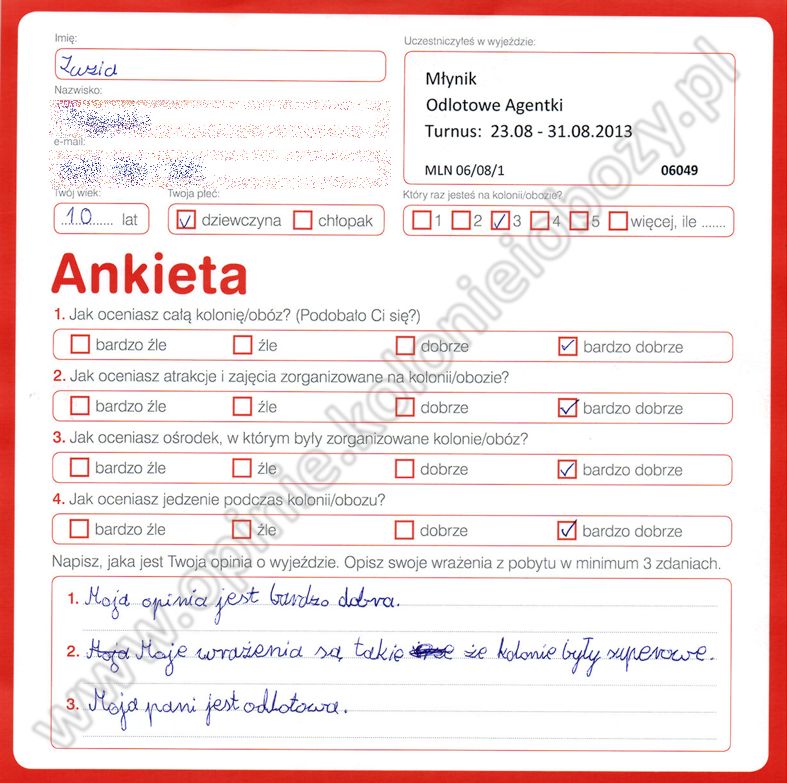 Imię:
Zuzia
Nazwisko:
e-mail:
Twój wiek:
10 lat
Twoja płeć:
dziewczyna chłopak
Uczestniczyłeś w wyjeździe:
Młynik
Odlotowe Agentki
Turnus: 23.08 - 31.08.2013
MLN 06/08/1 06049
Który raz jesteś na kolonii/obozie?
1 2 3 4 5 więcej, ile .......
Ankieta
1. Jak oceniasz całą kolonię/obóz? (Podobało Ci się?)
bardzo źle źle dobrze bardzo dobrze
2. Jak oceniasz atrakcje i zajęcia zorganizowane na kolonii/obozie?
bardzo źle źle dobrze bardzo dobrze
3. Jak oceniasz ośrodek, w którym były zorganizowane kolonie/obóz?
bardzo źle źle dobrze bardzo dobrze
4. Jak oceniasz jedzenie podczas kolonii/obozu?
bardzo źle źle dobrze bardzo dobrze
Napisz, jaka jest Twoja opinia o wyjeździe. Opisz swoje wrażenia z pobytu w minimum 3 zdaniach.
1. Moja opinia jest bardzo dobra.
2. Moja Moje wrażenia są takie że kolonie były superowe.
3. Moja pani jest odlotowa.
www.opinie.kolonieiobozy.pl